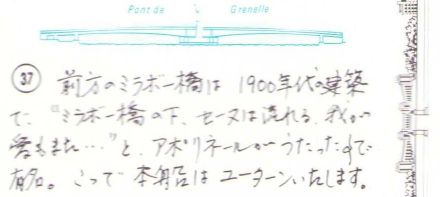 Pont de Grenelle
37 前方のミラボー橋は 1900年代の建築
で、"ミラボー橋の下、セーヌは流れる、我が
愛もまた…"と、アポリネールがうたったので
有名。ここで本船はユーターンいたします。